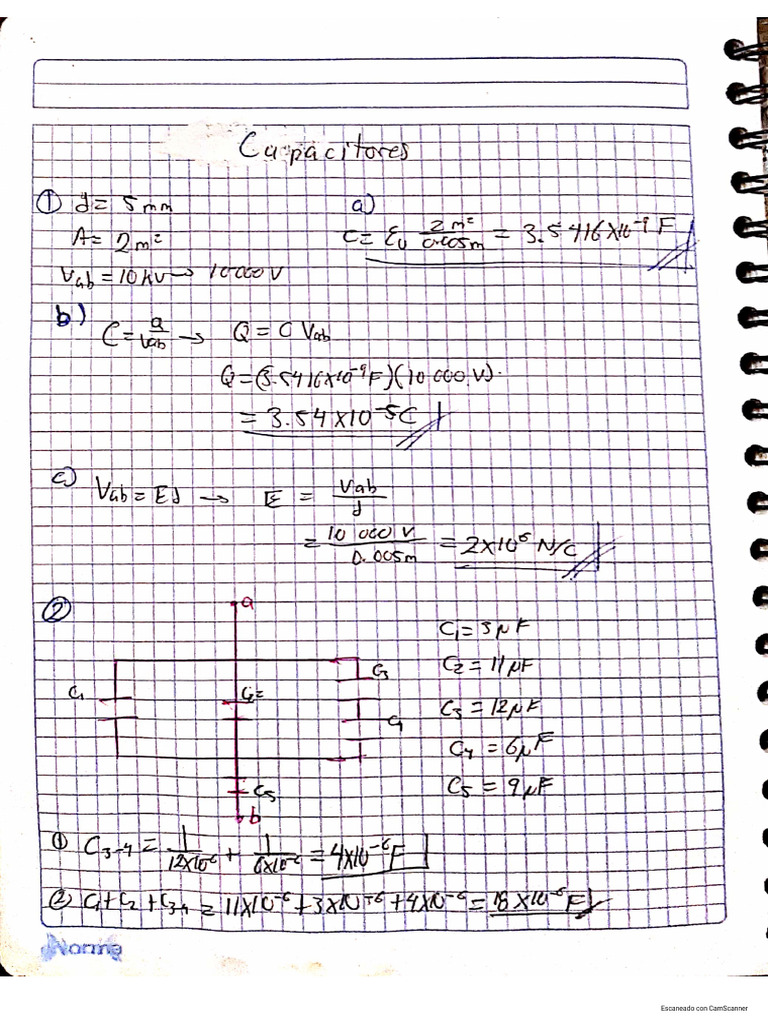 Capacitores
① d = 5 mm
A = 2 m²
Vab = 10 kV → 10 000 V
a)
C = ε₀ 2 m² / 0.005 m = 3.5416 x 10⁻⁹ F
b)
C = Q / Vab → Q = C Vab
Q = (3.5416 x 10⁻⁹ F)(10 000 V).
= 3.54 x 10⁻⁵ C
c) Vab = Ed → E = Vab / d
= 10 000 V / 0.005 m = 2 x 10⁶ N/C
②
a
C₁
C₂ =
C₃
C₄
C₅
b
C₁ = 3 μF
C₂ = 11 μF
C₃ = 12 μF
C₄ = 6 μF
C₅ = 9 μF
① C₃₋₄ = 1 / 12x10⁻⁶ + 1 / 6x10⁻⁶ = 4x10⁻⁶ F
② C₁ + C₂ + C₃₄ = 11x10⁻⁶ + 3x10⁻⁶ + 4x10⁻⁶ = 18x10⁻⁶ F
Norma
Escaneado con CamScanner